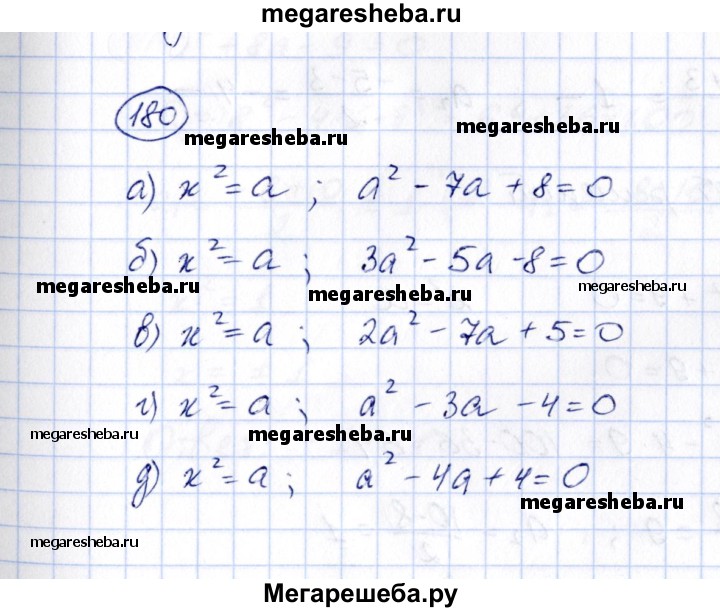 megaresheba.ru
180
megaresheba.ru
megaresheba.ru
а) x² = a ; a² - 7a + 8 = 0
б) x² = a ; 3a² - 5a - 8 = 0
megaresheba.ru
megaresheba.ru
megaresheba.ru
в) x² = a ; 2a² - 7a + 5 = 0
г) x² = a ; a² - 3a - 4 = 0
megaresheba.ru
megaresheba.ru
д) x² = a ; a² - 4a + 4 = 0
megaresheba.ru
megaresheba.ru
Мегарешеба.ру